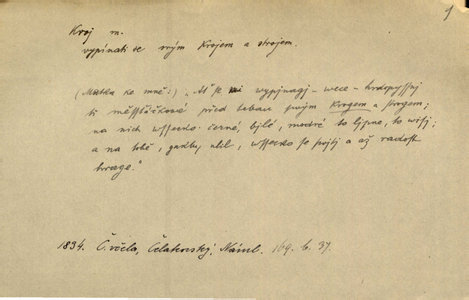 1
Kroj m.
vypínati se svým krojem a strojem.
(Matka ke mně:) „Ať se wypjnagj – wece – hrdopyssnj
ti měssťáčkowé před tebau swým krogem a strogem;
na nich wssecko černé, býlé, modré to lijpne, to wisý;
a na tobě, gakby ulil, wssecko to pojtj a až radost
hrage."
1834. Č. včela, Čelakovský, Námi. 169. b. 37.